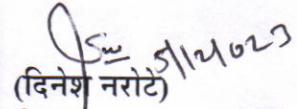 5/12/2023
(दिनेश नरोटे)